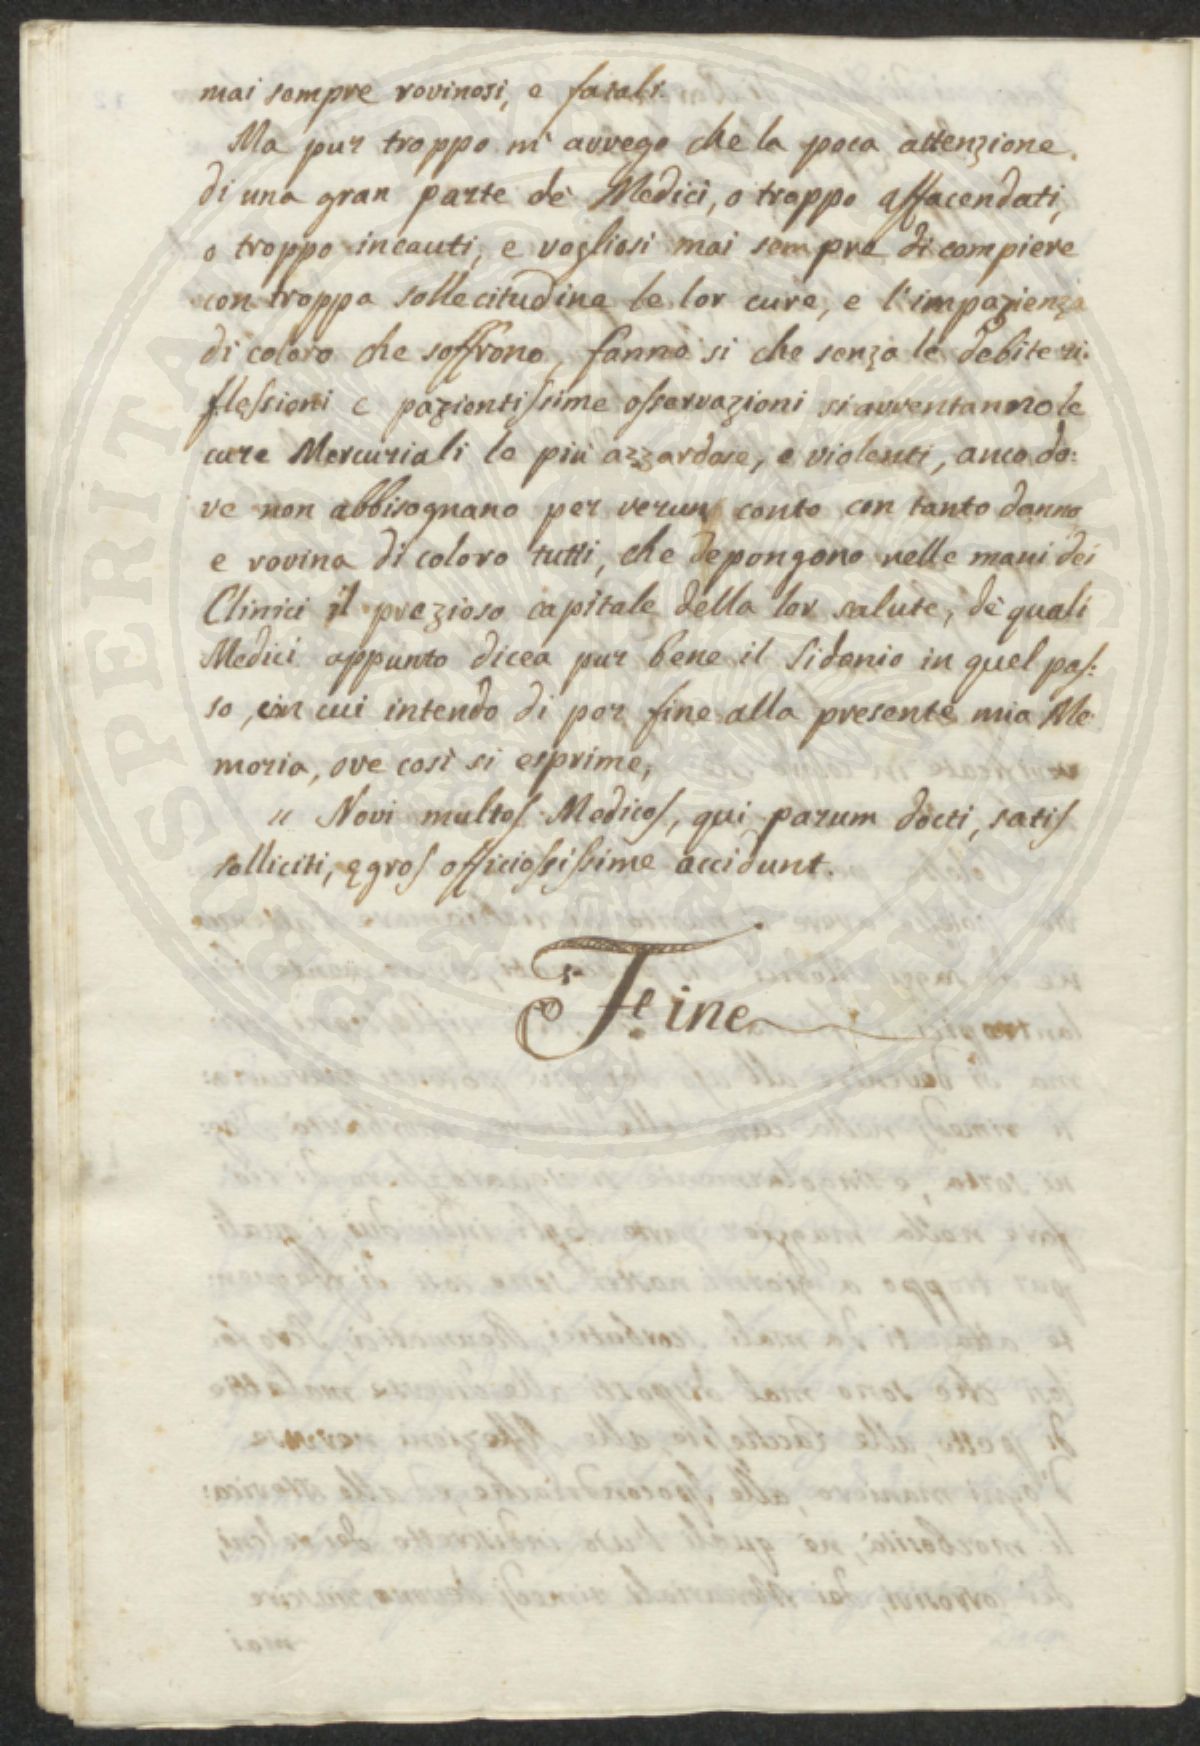 mai sempre rovinosi, e fatali.
Ma pur troppo m' avvego che la poca attenzione
di una gran parte de' Medici, o troppo affacendati,
o troppo incauti, e vogliosi mai sempre di compiere
con troppa sollecitudine le lor cure, e l'impazienza
di coloro che soffrono, fanno si che senza le debite ri:
flessioni e pazientissime osservazioni si avventanno le
cure Mercuriali le più azzardose, e violenti, anco do:
ve non abbisognano per verun conto con tanto danno
e rovina di coloro tutti, che depongono nelle mani dei
Clinici il prezioso capitale della lor salute, de' quali
Medici appunto dicea pur bene il Sidanio in quel pas:
so, in cui intendo di por fine alla presente mia Me:
moria, ove così si esprime,
" Novi multos Medicos, qui parum docti, satis
solliciti, ęgros officiosissime occidunt.
Fine